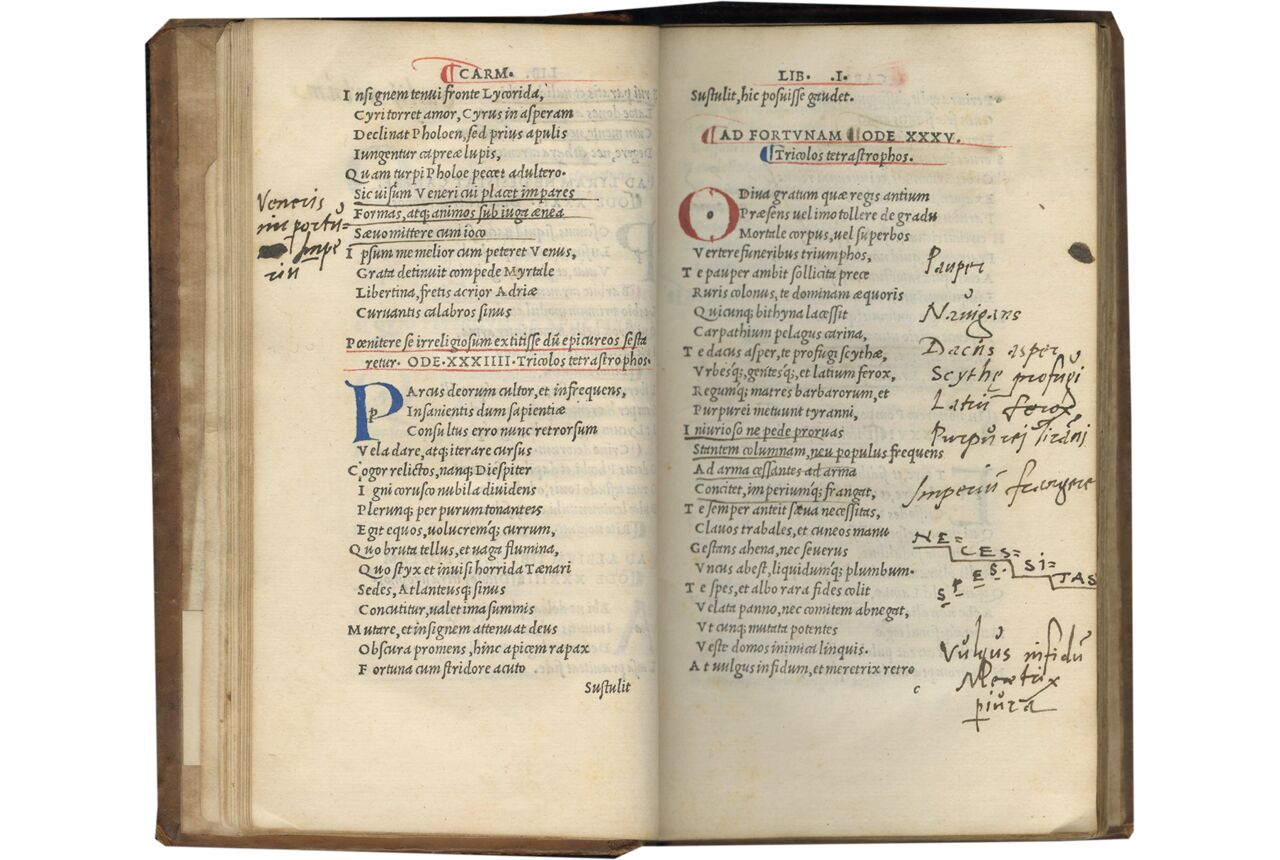 CARM.
Insignem tenui fronte Lycorida,
Cyri torret amor, Cyrus in asperam
Declinat Pholoen, sed prius apulis
Iungentur capreæ lupis,
Quam turpi Pholoe peccet adultero.
Sic uisum Veneri cui placet impares
Formas, atq; animos sub iuga ænea
Sæuo mittere cum ioco
Ipsum me melior cum peteret Venus,
Grata detinuit compede Myrtale
Libertina, fretis acrior Adriæ
Curuantis calabros sinus
Veneris
importū=
Impe
riū
Pœnitere se irreligiosum extitisse dū epicureos secta
retur. ODE.XXXIIII.Tricolos tetrastrophos.
P p Arcus deorum cultor, et infrequens,
Insanientis dum sapientiæ
Consultus erro nunc retrorsum
Vela dare, atq; iterare cursus
Cogor relictos, nanq; Diespiter
Igni corusco nubila diuidens
Plerunq; per purum tonanteis
Egit equos, uolucremq; currum,
Quo bruta tellus, et uaga flumina,
Quo styx et inuisi horrida Tænari
Sedes, Atlanteusq; sinus
Concutitur, ualet ima summis
Mutare, et insignem attenuat deus
Obscura promens, hinc apicem rapax
Fortuna cum stridore acuto
Sustulit
LIB. .I.
Sustulit, hic posuisse gaudet.
AD FORTVNAM ODE XXXV.
Tricolos tetrastrophos.
O Diua gratum quæ regis antium
Præsens uel imo tollere de gradu
Mortale corpus, uel superbos
Vertere funeribus triumphos,
Te pauper ambit sollicita prece
Ruris colonus, te dominam æquoris
Quicunq; bithyna lacessit
Carpathium pelagus carina,
Te dacus asper, te profugi scythæ,
Vrbesq; gentesq;, et latium ferox,
Regumq; matres barbarorum, et
Purpurei metuunt tyranni,
Iniurioso ne pede proruas
Stantem columnam, neu populus frequens
Ad arma cessantes ad arma
Concitet, imperiumq; frangat,
Te semper anteit sæua necessitas,
Clauos trabales, et cuneos manu
Gestans ahena, nec seuerus
Vncus abest, liquidumq; plumbum.
Te spes, et albo rara fides colit
Velata panno, nec comitem abnegat,
Vtcunq; mutata potentes
Veste domos inimica linquis.
At uulgus infidum, et meretrix retro
c
Pauper
Nauigans
Dacus asper
Scythę profugi
Latiū ferox
Purpurej tirāni
Imperiū frangere
NE=
CES=
SI=
TAS
SPES.
Vulgus infidū
Meretrix
piura